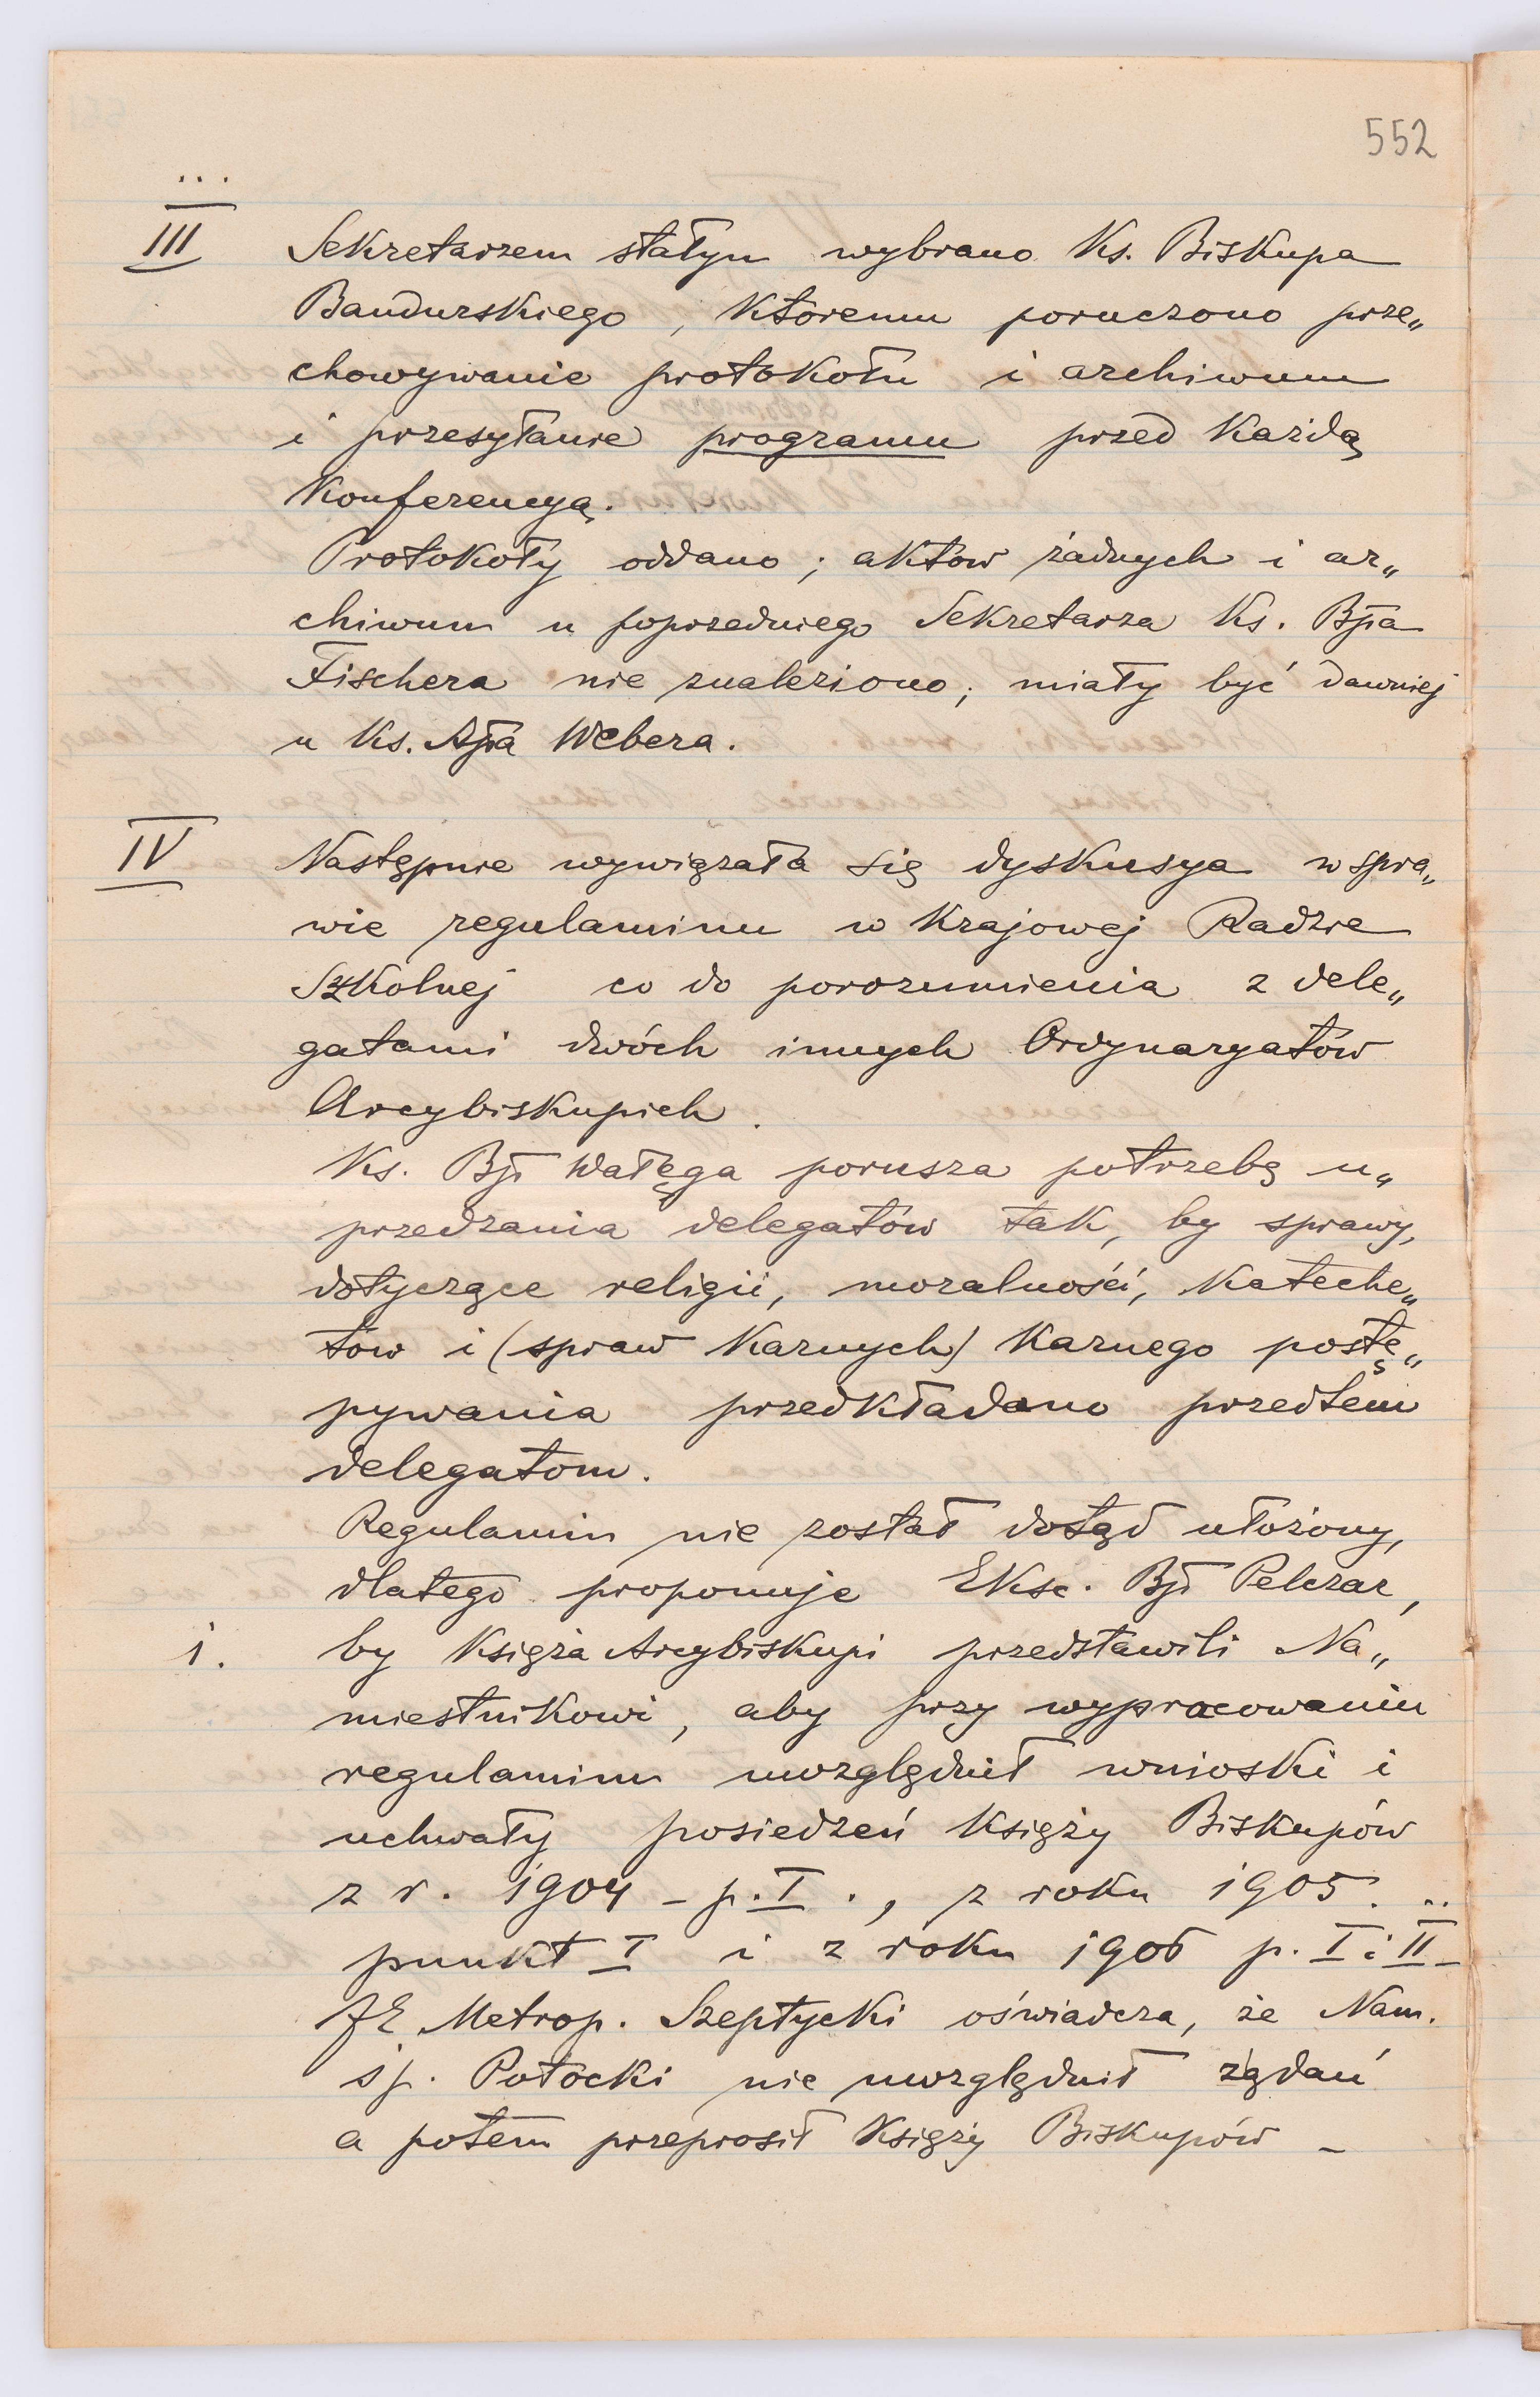 552
...
III Sekretarzem stałym wybrano Ks. Biskupa
Bandurskiego, któremu poruczono prze„
chowywanie protokołu i archiwum
i przesyłanie programu przed każdą
Konferencyą.
Protokoły oddano; aktów żadnych i ar„
chiwum u poprzedniego Sekretarza Ks. Bpa
Fischera nie znaleziono; miały być dawniej
u Ks. Apa Webera.
IV Następnie wywiązała się dyskusya w spra„
wie regulaminu w Krajowej Radzie
Szkolnej co do porozumienia z dele„
gatami dwóch innych Ordynaryatów
Arcybiskupich.
Ks. Bp Wałęga porusza potrzebę u„
przedzania delegatów tak, by sprawy,
dotyczące religii, moralności, kateche„
tów i (spraw karnych) karnego postę„
pywania przedkładano przedtem
delegatom.
Regulamin nie został dotąd ułożony,
dlatego proponuje Eksc. Bp Pelczar,
1. by Księża Arcybiskupi przedstawili Na„
miestnikowi, aby przy wypracowaniu
regulaminu uwzględnił wnioski i
uchwały posiedzeń Księży Biskupów
z r. 1904 - p. I., z roku 1905. ..
punkt I i z roku 1906 p. I i II -
JE Metrop. Szeptycki oświadcza, że Nam.
śp. Potocki nie uwzględnił żądań
a potem przeprosił Księży Biskupów -